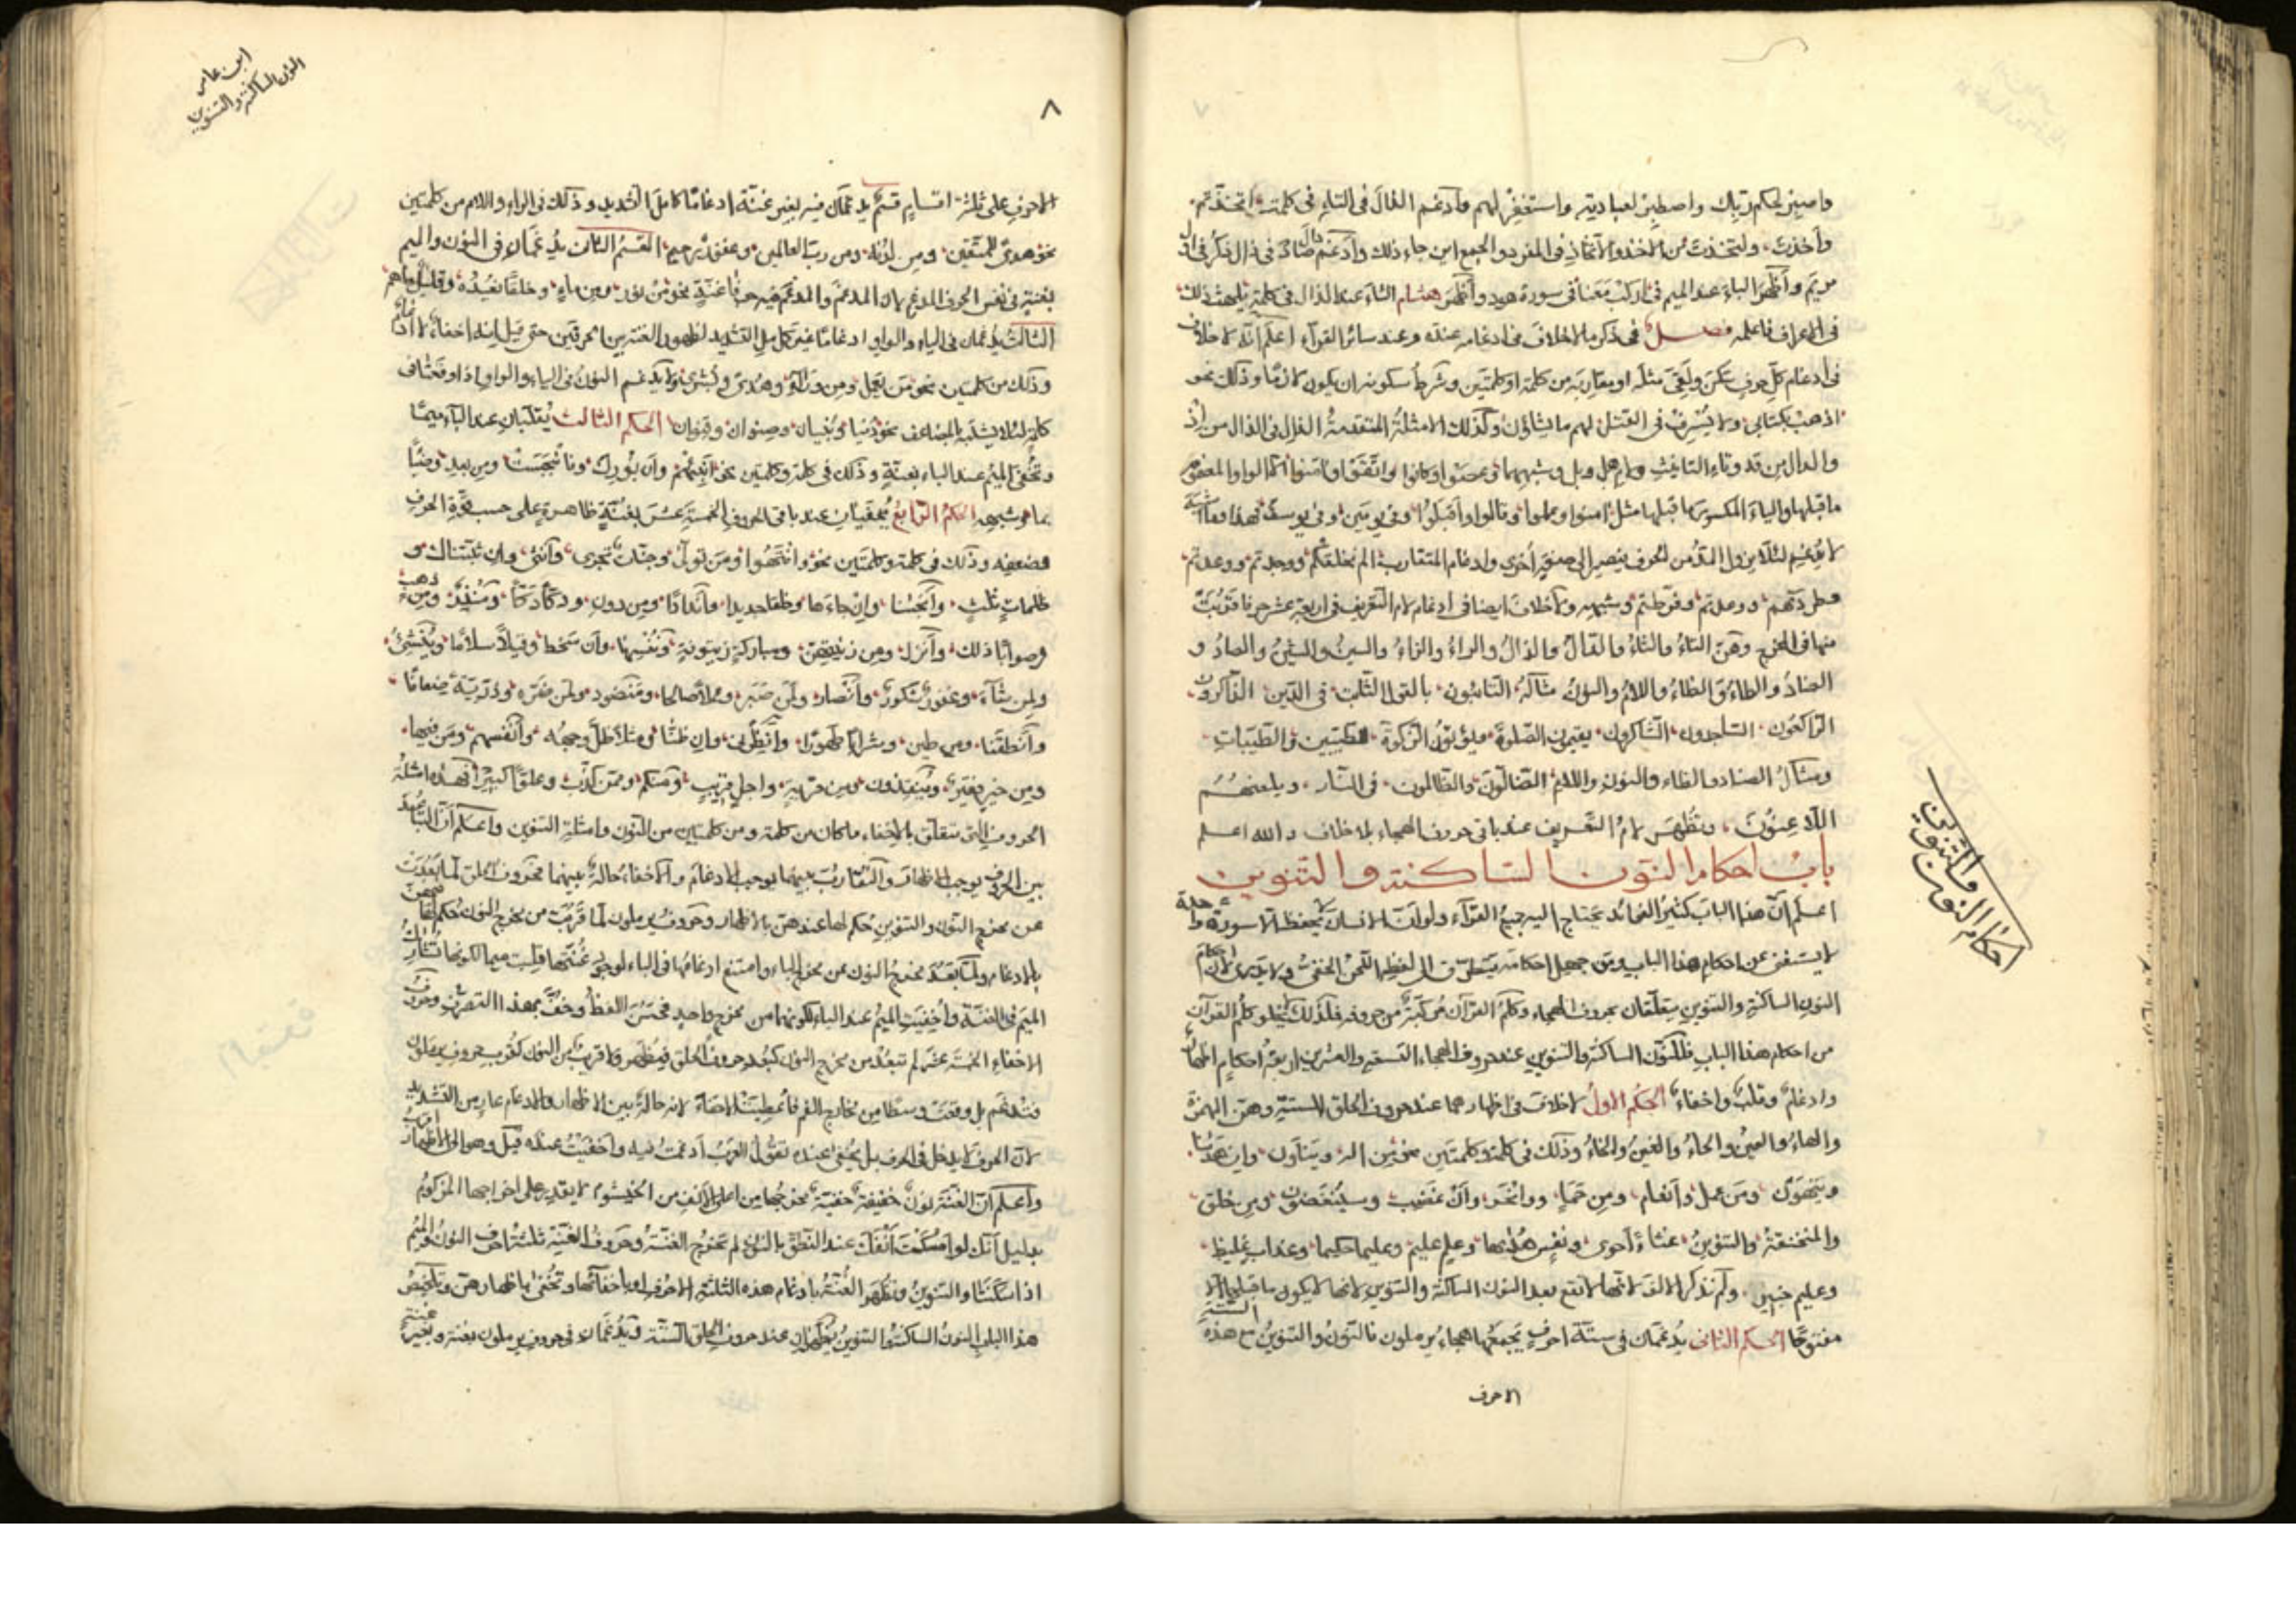 واصبر لحكم ربك واصطبر لعبادته واستغفر لهم وأدغم الذال في التاء في كلمة اتخذتم
وأخذت ولتخذت من الاخذ والاتخاذ في المفرد والجمع اين جاء ذلك وأدغم صاد في ذال ذكر في أول
مريم وأظهر الباء عند الميم في اركب معنا في سورة هود وأظهر هشام الثاء عند الذال في كلمة يلهث ذلك
في الاعراف فاعلمه فصل في ذكر ما لا خلاف في ادغامه عنده وعند سائر القراء اعلم انه لا خلاف
في ادغام كل حرف سكن ولقي مثله او مقاربه من كلمة او كلمتين وشرط سكونه ان يكون لازما وذلك نحو
اذهب بكتابي ولا يسرف في القتل لهم ما يشاؤن وكذلك الامثلة المتقدمة الذال في الذال من اذ
والدال من قد وتاء التانيث ولام هل وبل وشبههما وعصوا وكانوا واتقوا وامنوا اما الواو المضموم
ما قبلها والياء المكسور ما قبلها مثل امنوا وعملوا وقالوا واقبلوا وفي يومين وفي يوسف فهذا وما اشبهه
لا يدغم لئلا يزول المد من الحرف فيصير الى صفة اخرى وادغام المتقارب الم نخلقكم ووجدتم ووعدتم
وطردتهم وروعدتم وفرطتم وشبهه ولا خلاف ايضا في ادغام لام التعريف في اربعة عشر حرفا قربت
منها في المخرج وهن التاء والثاء والدال والذال والراء والزاء والسين والشين والصاد و
الضاد والطاء والظاء واللام والنون مثاله التائبون بالقول الثابت في الدين الذاكرون
الراكعون الساجدون الشاكرون يقيمون الصلوة ويؤتون الزكوة الطيبين والطيبات
ومثال الضاد والظاء والنون واللام الضالون والظالمون في النار ويلعنهم
اللاعنون ، وتظهر لام التعريف عند باقي حروف الهجاء بلا خلاف والله اعلم
باب احكام النون الساكنة والتنوين
اعلم ان هذا الباب كثير الفوائد يحتاج اليه جميع القراء ولو ان انسانا لا يحفظ الا سورة واحدة
لا يستغني عن احكام هذا الباب ومن جهل احكامه يتطرق الى لفظه اللحن الخفي ولا يدري لان احكام
النون الساكنة والتنوين متعلقان بحروف الهجاء وكلم القرآن مركبة من حروفه فلذلك لا يخلو كلم القرآن
من احكام هذا الباب فللنون الساكنة والتنوين عند حروف الهجاء التسعة والعشرين اربعة احكام اظهار
وادغام وقلب واخفاء الحكم الاول لا خلاف في اظهارهما عند حروف الحلق الستة وهن الهمزة
والهاء والعين والحاء والغين والخاء وذلك في كلمة وكلمتين نحو من اله وينأون وان هدينا
وينهون ومن عمل وانعام ومن حماء وانحر وان غضب وسينغضون ومن خلق
والمنخنقة والتنوين غثاء أحوى ونفس هداها وعلم عليم وعليما حكيما وعذاب غليظ
وعليم خبير ولم نذكر الالف لانها لا تقع بعد النون الساكنة والتنوين لانها لا يكون ما قبلها الا
مفتوحا الحكم الثاني يدغمان في ستة احرف يجمعها هجاء يرملون فالنون والتنوين مع هذه الستة
الاحرف
احكام النون والتنوين
٨
ابن عامر
النون الساكنة والتنوين
الاحرف على ثلثة اقسام قسم يدغمان فيه بغير غنة ادغاما كامل التشديد وذلك في الراء واللام من كلمتين
نحو هدى للمتقين ومن لدنه ومن رب العالمين وغفور رحيم القسم الثاني يدغمان في النون والميم
بغنة في نفس الحرف المدغم لان المدغم والمدغم فيه حرفا غنة نحو من نور ومن ماء وخلقا نعيده وقليل ما هم
الثالث يدغمان في الياء والواو ادغاما غير كامل التشديد لظهور الغنة بين الحرفين حتى قيل انه اخفاء لا ادغام
وذلك من كلمتين نحو من يعمل ومن وال وهدى وبشرى ولا يدغم النون في الياء والواو اذا وقعتا في
كلمة لئلا يشتبه بالمضاعف نحو دنيا وبنيان وصنوان وقنوان الحكم الثالث يقلبان عند الباء ميما
وتخفى الميم عند الباء بغنة وذلك في كلمة وكلمتين نحو انبئهم وأن بورك وفانبجست ومن بعد وصما
بما وشبهه الحكم الرابع يخفيان عند باقي الحروف الخمسة عشر بغنة ظاهرة على حسب قوة الحرف
وضعفه وذلك في كلمة وكلمتين نحو وانتهوا ومن تولى وجنات تجرى وأنثى وان ثبتناك و
ظلمات ثلث وأنجينا وان جاءها وخلقا جديدا وأندادا ومن دون ودكا دكا ومنذر ومن ذهب
وصوابا ذلك وأنزل ومن زينتهن ومباركة زيتونة وننسها وأن سخط وقيلا سلاما وينشئ
ولمن شاء وغفور شكور وأنصار ولمن صبر وعملا صالحا ومنضود ولمن ضره وذرية ضعافا
وأنطقنا ومن طين وشرابا طهورا وأنظرني وان ظنا ومثلا ظل وجهه وأنفسهم ومن فيها
ومن خير فقير وينقذون ومن قرية واجل قريب ومنكم وممن كذب وعلوا كبيرا فهذه امثلة
الحروف التي تتعلق بالاخفاء ما كان من كلمة ومن كلمتين من النون وامثلة التنوين واعلم ان التباعد
بين الحروف يوجب الاظهار والتقارب بينهما يوجب الادغام والاخفاء حالة بينهما فحروف الحلق لما بعدت
عن مخرج النون والتنوين حكم لها عندهن بالاظهار وحروف يرملون لما قربت من مخرج النون حكم لها
بالادغام ولما بعد مخرج النون عن مخرج الباء وامتنع ادغامها في الباء لوجود غنتها قلبت ميما لكونها تشارك
الميم في الغنة وأخفيت الميم عند الباء لكونهما من مخرج واحد فحسن اللفظ وخف بهذا التصرف وحروف
الاخفاء الخمسة عشر لم تبعد من مخرج النون كبعد حروف الحلق فيظهر ولا قريب من النون كقرب حروف يرملون
فتدغم بل وقعت وسطا من مخارج الفم فاعطيت الاخفاء لانه حالة بين الاظهار والادغام عار من التشديد
لان الحرف لا يدخل في الحرف بل يخفى عنده تقول العرب أدغمت فيه وأخفيت عنده قيل وهو الى الاظهار اقرب
واعلم ان الغنة نون خفيفة خفية مخرجها من اعلى الانف من الخيشوم لا يقدر على اخراجها المزكوم
بدليل انك لو امسكت أنفك عند النطق بالنون لم تخرج الغنة وحروف الغنة ثلثة احرف النون والميم
اذا سكنتا والتنوين وتظهر الغنة بادغام هذه الثلثة الاحرف او باخفائها وتخفى باظهارهن وتلخيص
هذا الباب النون الساكنة والتنوين يظهران عند حروف الحلق الستة ويدغمان في حروف يرملون بغنة وبغير غنة